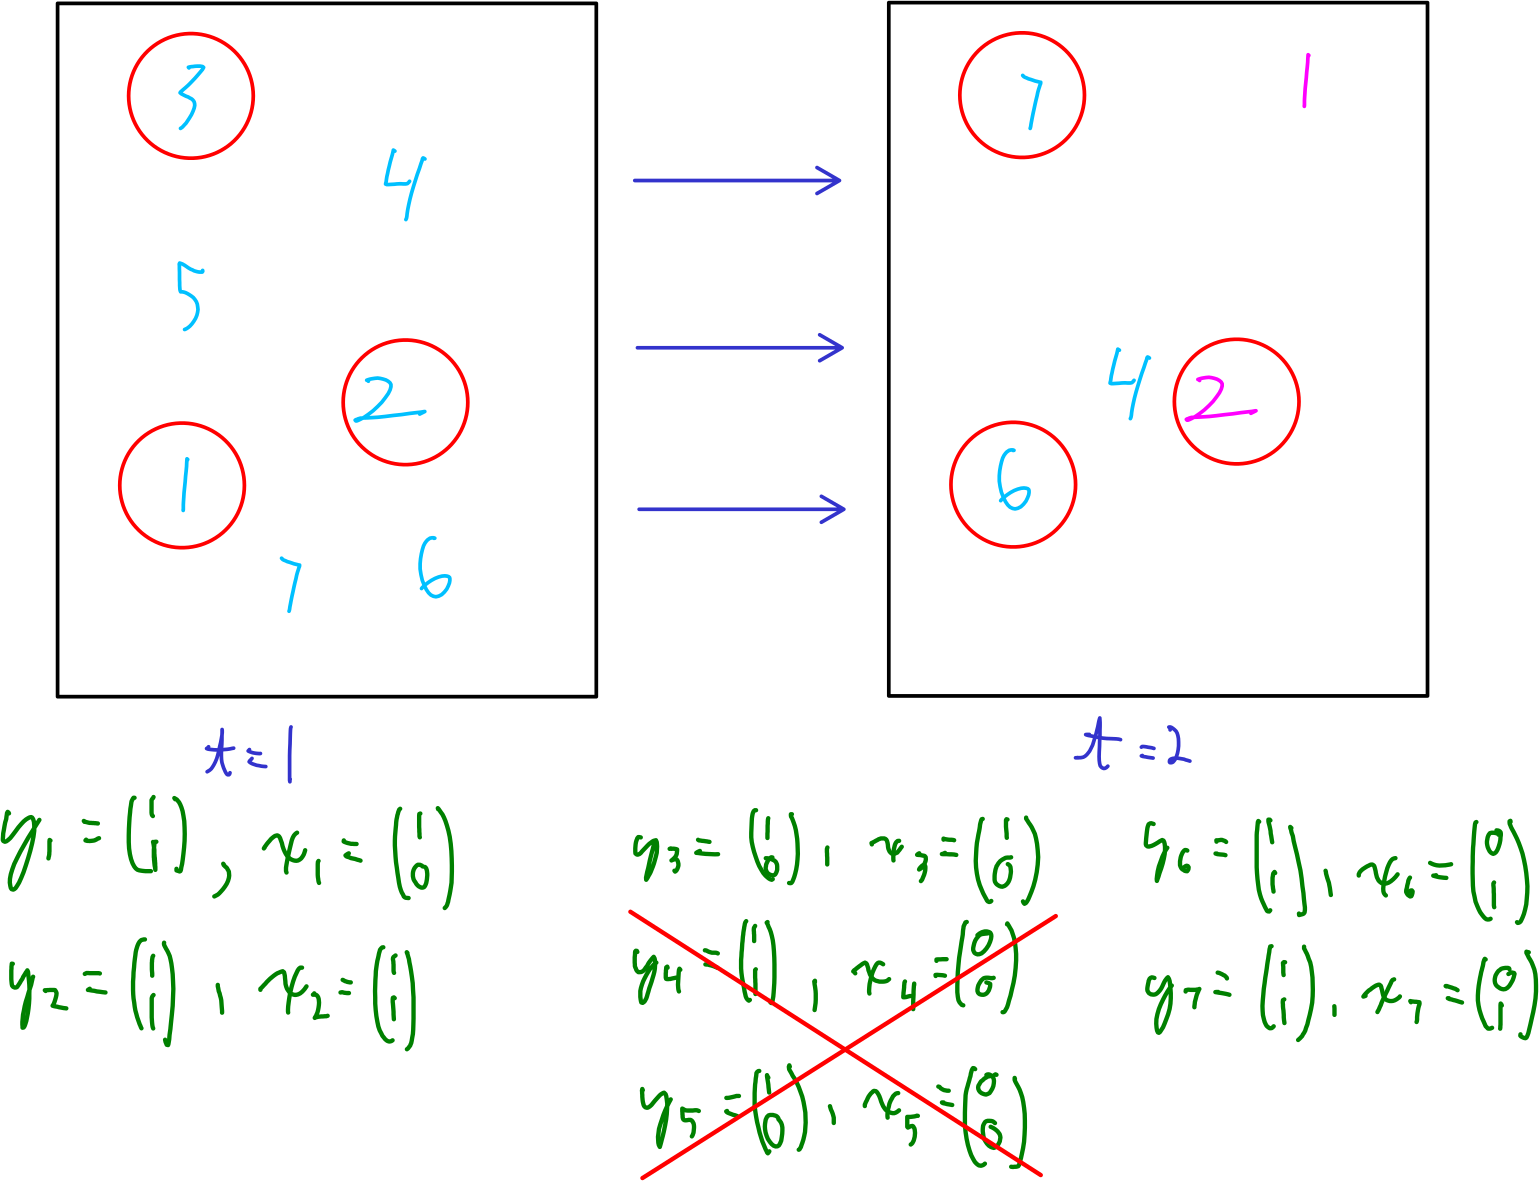 3
4
5
2
1
7
6
7
1
4
2
6
t=1
t=2
y₁ = (1 1), x₁ = (1 0)
y₂ = (1 1), x₂ = (1 1)
y₃ = (1 0), x₃ = (1 0)
y₄ = (1 1), x₄ = (0 0)
y₅ = (1 0), x₅ = (0 0)
y₆ = (1 1), x₆ = (0 1)
y₇ = (1 1), x₇ = (0 1)